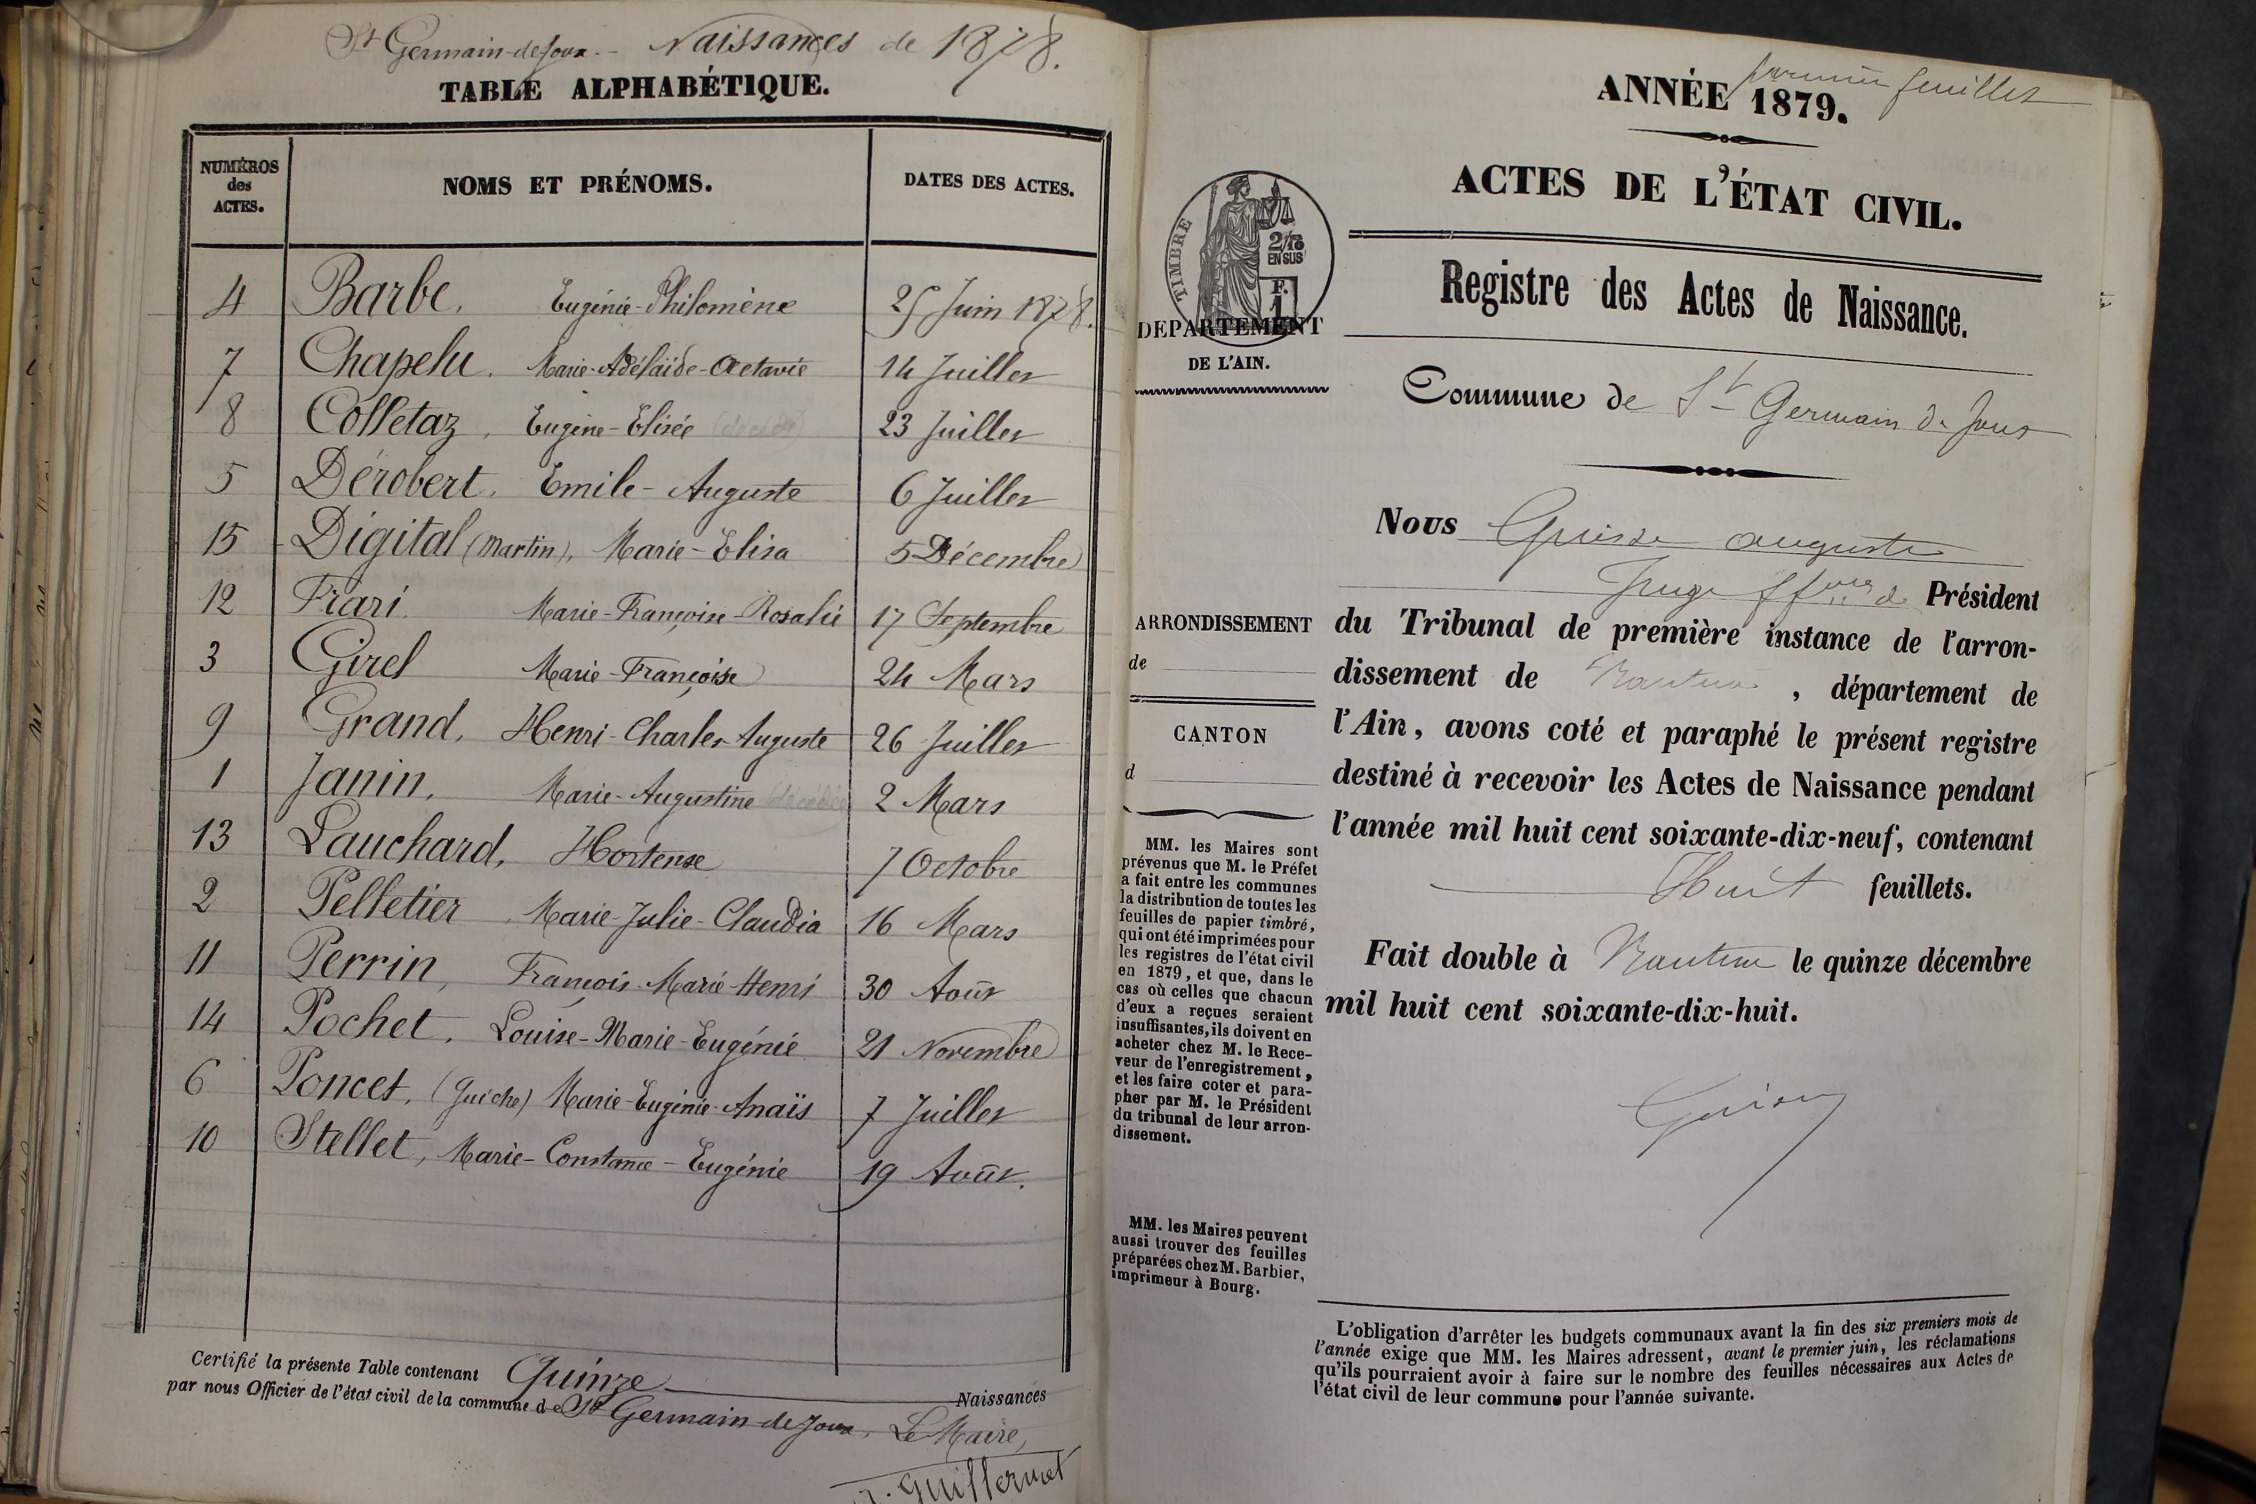 St Germain-de-Joux. - Naissances de 1878.
TABLE ALPHABÉTIQUE.
NUMÉROS des ACTES. NOMS ET PRÉNOMS. DATES DES ACTES.
4 Barbe, Eugénie-Philomène 25 Juin 1878.
7 Chapelu. Marie-Adélaïde-Octavie 14 Juillet
8 Colletaz, Eugène-Elisée (décédé) 23 Juillet
5 Dérobert, Emile-Auguste 6 Juillet
15 Digital (Martin), Marie-Elisa 5 Décembre
12 Frari. Marie-Françoise-Rosalie 17 Septembre
3 Girel Marie-Françoise 24 Mars
9 Grand, Henri-Charles-Auguste 26 Juillet
1 Janin, Marie-Augustine (décédée) 2 Mars
13 Lauchard, Hortense 7 Octobre
2 Pelletier, Marie-Julie-Claudia 16 Mars
11 Perrin, François-Marie-Henri 30 Août
14 Pochet, Louise-Marie-Eugénie 21 Novembre
6 Poncet, (Guiche) Marie-Eugénie-Anaïs 7 Juillet
10 Stellet, Marie-Constance-Eugénie 19 Août.
Certifié la présente Table contenant Quinze Naissances
par nous Officier de l'état civil de la commune de St Germain-de-Joux, Le Maire,
Guillermet
premier feuillet
ANNÉE 1879.
ACTES DE L'ÉTAT CIVIL.
TIMBRE
2/10
EN SUS
F.
1
Registre des Actes de Naissance.
DEPARTEMENT
DE L'AIN.
Commune de St Germain de Joux
Nous Auguste
Juge ffons de Président
ARRONDISSEMENT
de
CANTON
d
du Tribunal de première instance de l'arron-
dissement de Nantua, département de
l'Ain, avons coté et paraphé le présent registre
destiné à recevoir les Actes de Naissance pendant
l'année mil huit cent soixante-dix-neuf, contenant
Huit feuillets.
Fait double à Nantua le quinze décembre
mil huit cent soixante-dix-huit.
MM. les Maires sont
prévenus que M. le Préfet
a fait entre les communes
la distribution de toutes les
feuilles de papier timbré,
qui ont été imprimées pour
les registres de l'état civil
en 1879, et que, dans le
cas où celles que chacun
d'eux a reçues seraient
insuffisantes, ils doivent en
acheter chez M. le Rece-
veur de l'enregistrement,
et les faire coter et para-
pher par M. le Président
du tribunal de leur arron-
dissement.
MM. les Maires peuvent
aussi trouver des feuilles
préparées chez M. Barbier,
imprimeur à Bourg.
L'obligation d'arrêter les budgets communaux avant la fin des six premiers mois de
l'année exige que MM. les Maires adressent, avant le premier juin, les réclamations
qu'ils pourraient avoir à faire sur le nombre des feuilles nécessaires aux Actes de
l'état civil de leur commune pour l'année suivante.